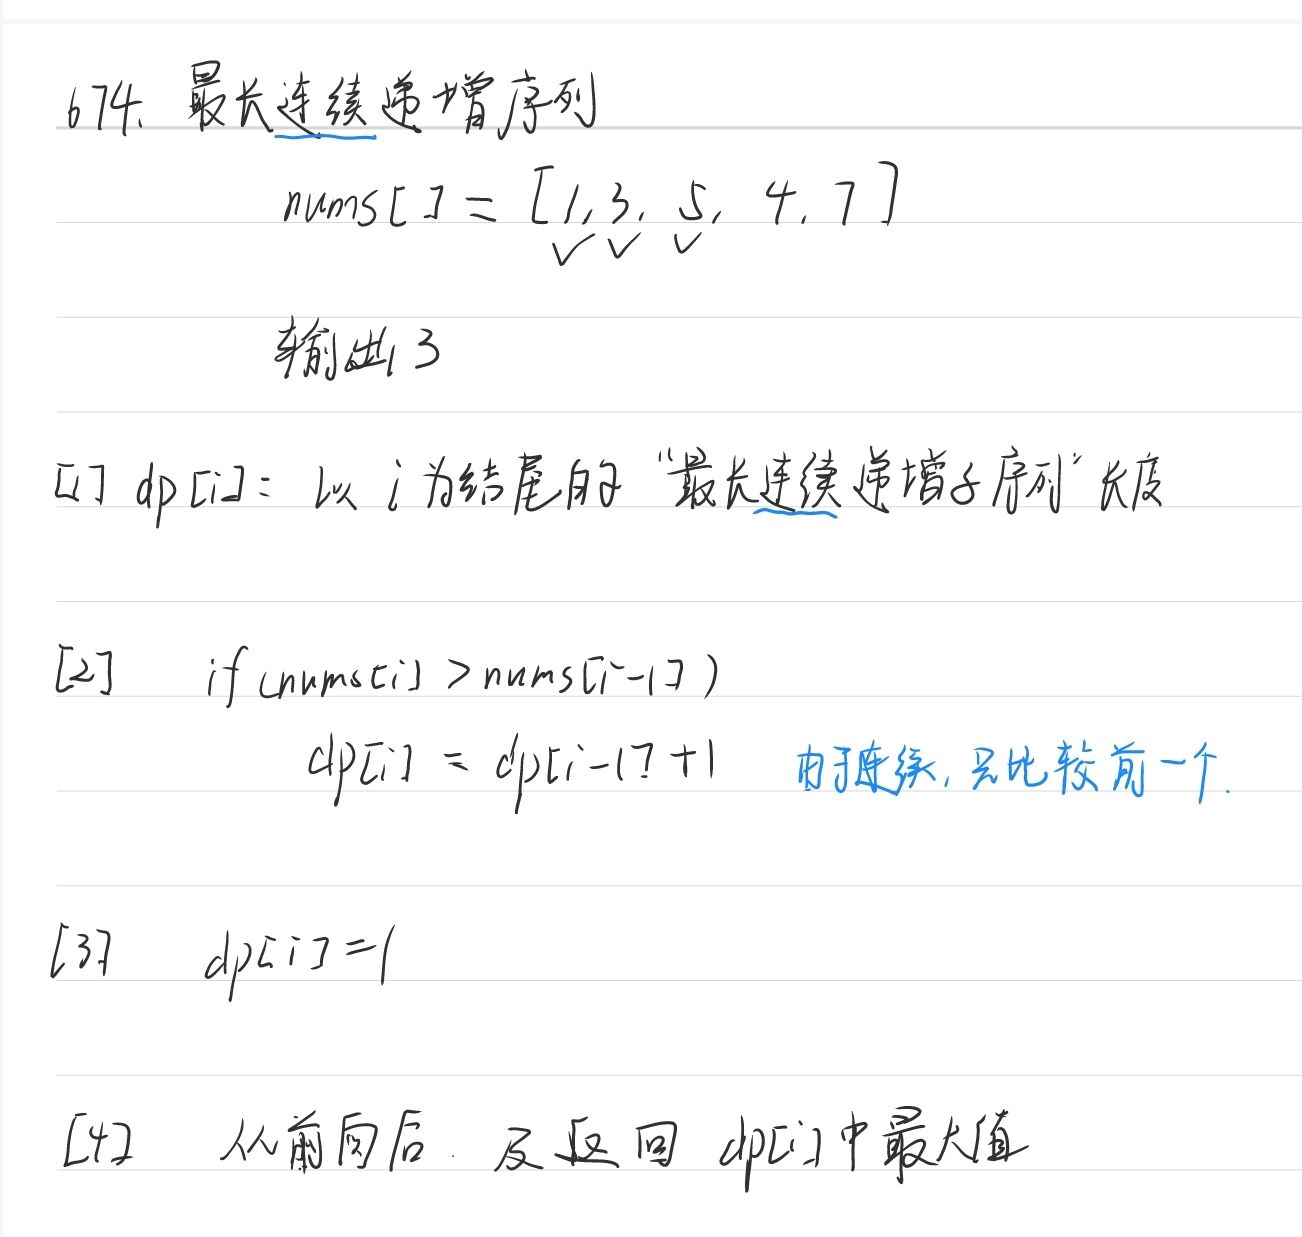 674. 最长连续递增序列
nums[] = [1, 3, 5, 4, 7]
输出 3
[1] dp[i]: 以 i 为结尾的 "最长连续递增子序列" 长度
[2] if (nums[i] > nums[i-1])
dp[i] = dp[i-1] + 1 由于连续, 只比较前一个.
[3] dp[i] = 1
[4] 从前向后. 及返回 dp[i] 中最大值